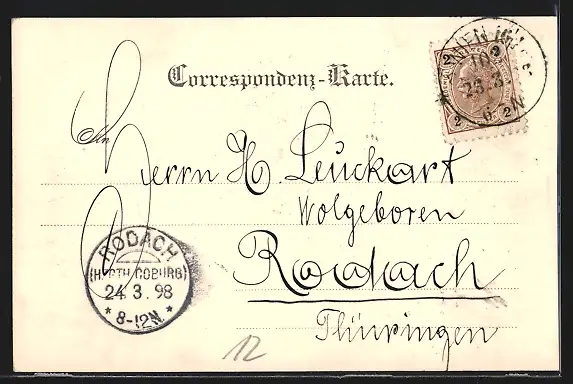 Correspondenz-Karte.
2 2
2 2
23.3
6.N
An
Herrn H. Leuckart
Wolgeboren
Rodach
Thüringen
RODACH
(HRZTH. COBURG)
24.3.98
* 8-12N. *
12